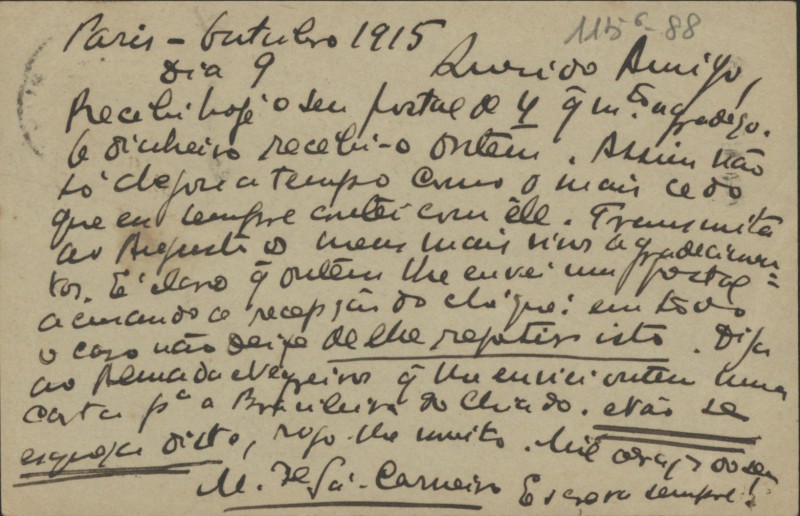 115⁶-88
Paris - Outubro 1915
Dia 9 Querido Amigo,
Recebi hoje o seu postal de 4 q̃ m.to agradeço.
O dinheiro recebi-o ontem. Assim não
só chegou a tempo como o mais cedo
que eu sempre contei com êle. Transmita
ao Augusto os meus mais vivos agradecimen=
tos. E' claro q̃ ontem lhe enviei um postal
acusando a recepção do chéque: em todo
o caso não deixe de lhe repetir isto. Diga
ao Almada Negreiros q̃ lhe enviei ontem uma
carta pª a Brasileira do Chiado. Não se
esqueça disto, rogo-lhe muito. Mil abraços do seu
M. de Sá-Carneiro Escreva sempre!